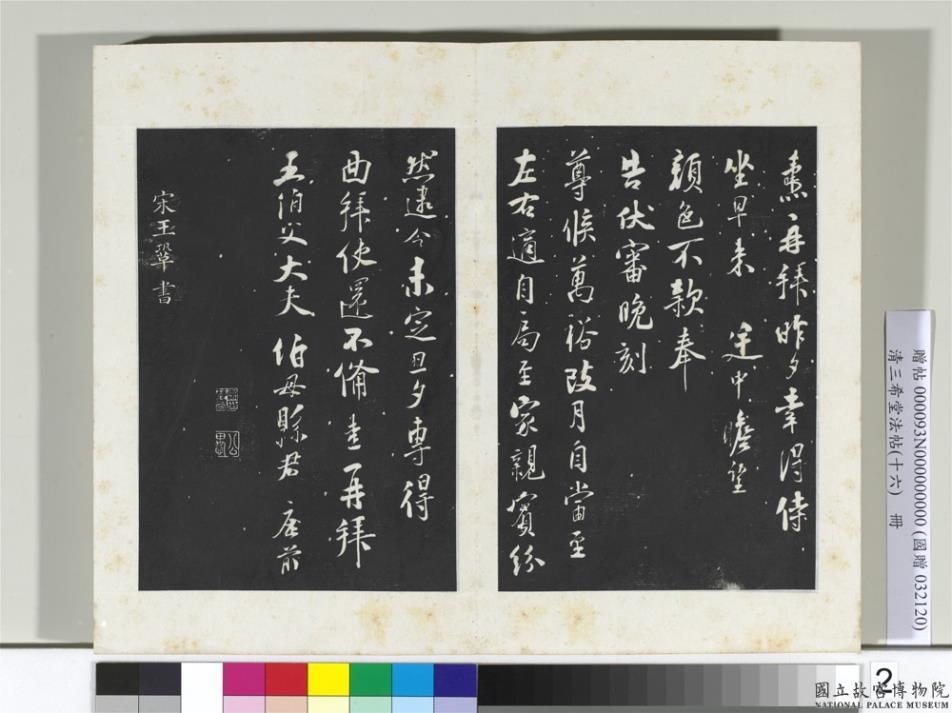 燾再拜昨夕幸得侍
坐早來 廷中瞻望
顏色不款奉
告伏審晚刻
尊候萬裕改月自當至
左右適自局至家親賓紛
然逮今未定旦夕專得
曲拜使還不備燾再拜
五伯父大夫 伯母縣君 座前
宋王鞏書
贈帖 000093N000000000 (國贈 032120)
清三希堂法帖(十六) 冊
2
國立故宮博物院
NATIONAL PALACE MUSEUM